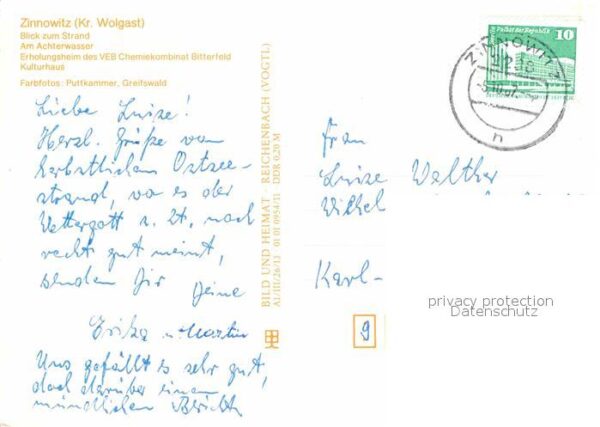 Zinnowitz (Kr. Wolgast)
Blick zum Strand
Am Achterwasser
Erholungsheim des VEB Chemiekombinat Bitterfeld
Kulturhaus
Farbfotos: Puttkammer, Greifswald
Liebe Luise!
Herzl. Grüße vom
herbstlichen Ostsee-
strand, wo es der
Wettergott z. Zt. noch
recht gut meint,
senden Dir Deine
Erika u. Martin
Uns gefällt es sehr gut,
doch darüber einen
mündlichen Bericht
BILD UND HEIMAT REICHENBACH (VOGTL)
A1/III/26/13 01 01 0954/11 DDR 0,20 M
Palast der Republik
10
ZINNOWITZ
2238
h
Frau
Luise Walther
Karl-
9
privacy protection
Datenschutz